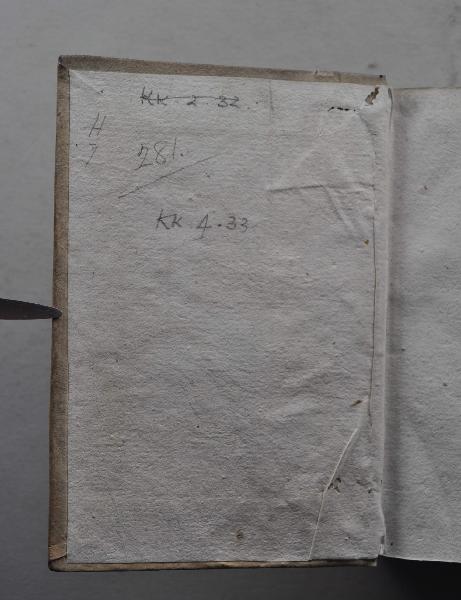 KK 2.32.
H
7 281.
KK 4.33